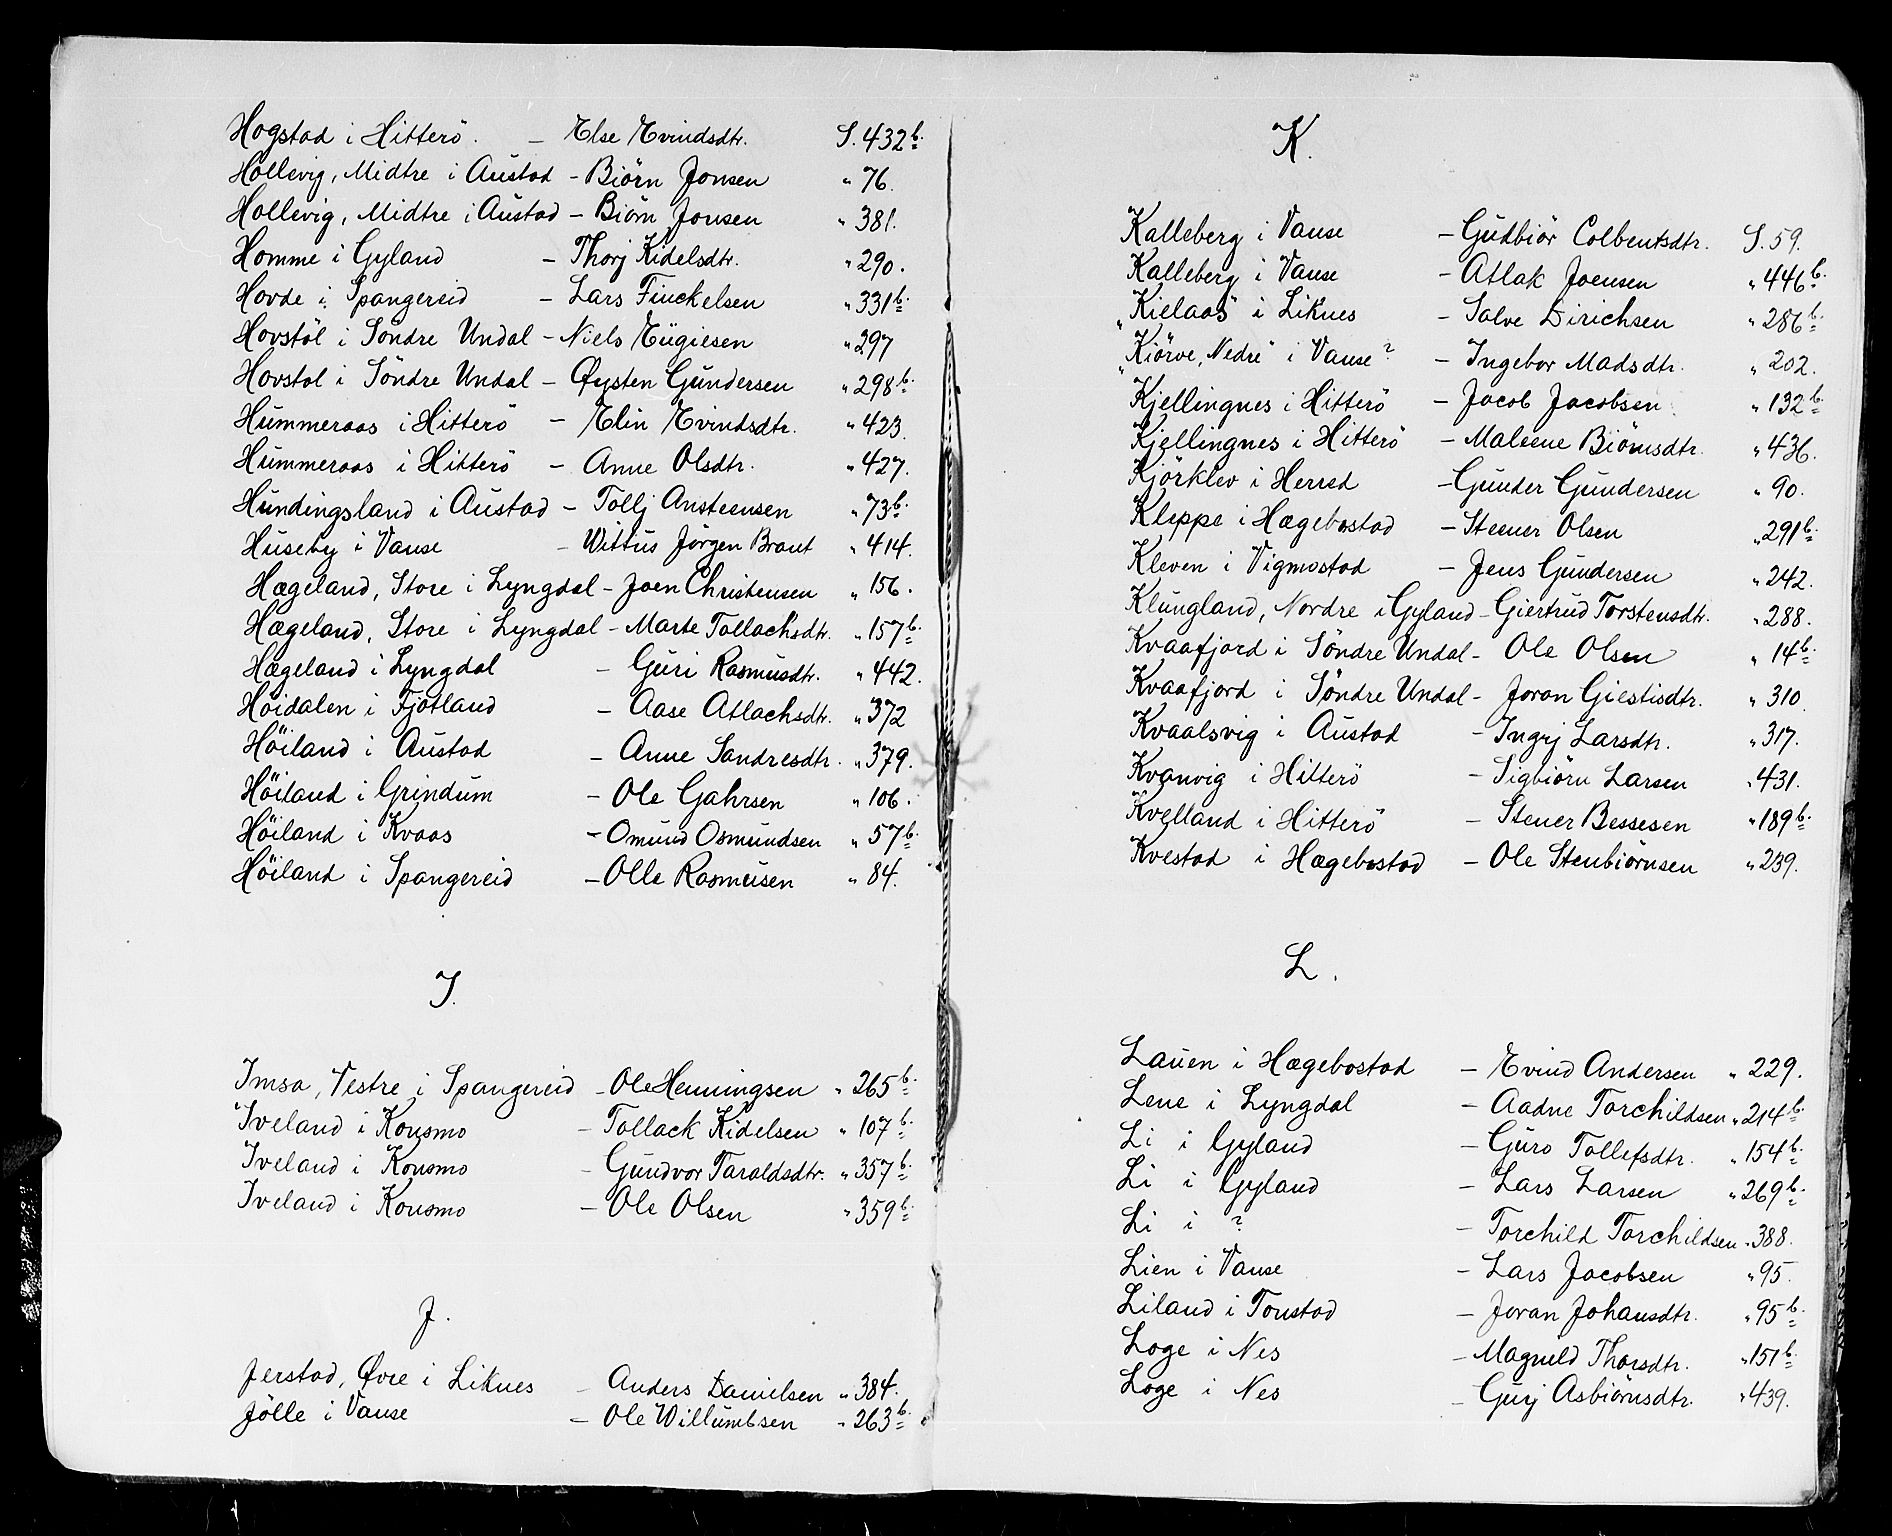 Hogstad i Hitterö. – Else Evindsdtr. S. 432 b.
Hollevig, Midtre i Austad – Biörn Jonsen " 76.
Hollevig, Midtre i Austad – Biörn Jonsen " 381.
Homme i Gyland – Thorj Kidelsdtr. " 290.
Hovde i Spangereid – Lars Finckelsen " 331 b.
Hovstöl i Söndre Undal – Niels Eügiesen " 297
Hovstøl i Söndre Undal – Øysten Gündersen " 298 b.
Hümmeraas i Hitterö – Elin Evindsdtr. " 423.
Hümmeraas i Hitterö – Anne Olsdtr. " 427.
Hündingsland i Aüstad – Tollj Ansteensen " 73 b.
Hüseby i Vanse – Wittus Jørgen Braut " 414.
Hægeland, Store i Lyngdal – Joen Christensen " 156.
Hægeland, Store i Lyngdal – Marte Tollachsdtr. " 157 b.
Hægeland i Lyngdal – Güri Rasmusdtr. " 442.
Höidalen i Fjotland – Aase Atlachsdtr. " 372
Höiland i Austad – Anne Sandresdtr. " 379.
Höiland i Grindum – Ole Gahrsen " 106.
Höiland i Kvaas – Omund Osmundsen " 57 b.
Höiland i Spangereid – Olle Rasmüsen " 84.
I.
Imsa, Vestre i Spangereid – Ole Henningsen " 265 b.
Iveland i Konsmo – Tollack Kidelsen " 107 b.
Iveland i Konsmo – Gundvor Taraldsdtr. " 357 b.
Iveland i Konsmo – Ole Olsen " 359 b.
J.
Jerstad, Øvre i Liknes – Anders Danielsen " 384.
Jölle i Vanse – Ole Willumbsen " 263 b.
K.
Kalleberg i Vanse – Gudbiör Colbentsdtr. S. 59.
Kalleberg i Vanse – Atlak Joensen " 446 b.
"Kielaas" i Liknes – Salve Dirichsen " 286 b.
"Kiörve, Nedre" i Vanse? – Ingebor Madsdtr. " 202.
Kjellingnes i Hitterö – Jacob Jacobsen " 132 b.
Kjellingnes i Hitterö – Maleene Biörnsdtr. " 436.
Kjörklev i Herred – Gunder Gundersen " 90.
Kleppe i Hægebostad – Steener Olsen " 291 b.
Kleven i Vigmostad – Jens Gundersen " 242.
Klungland, Nordre i Gyland – Giertrud Torstensdtr. " 288.
Kvaafjord i Söndre Undal – Ole Olsen " 14 b.
Kvaafjord i Söndre Undal – Joran Giestisdtr. " 310
Kvaalsvig i Austad – Ingrj Larsdtr. " 317.
Kvanvig i Hitterö – Sigbiörn Larsen " 431.
Kvelland i Hitterö – Stener Bessesen " 189 b.
Kvestad i Hægebostad – Ole Stenbiörnsen " 239.
L.
Lauen i Hægebostad – Evind Andersen " 229.
Lene i Lyngdal – Aadne Torchildsen " 214 b.
Li i Gyland – Guro Tollefsdtr. " 154 b.
Li i Gyland – Lars Larsen " 269 b.
Li i ? – Torchild Torchildsen " 388.
Lien i Vanse – Lars Jacobsen " 95.
Liland i Tonstad – Joran Johansdtr. " 95 b.
Loge i Nes – Magnild Thorsdtr. " 151 b.
Loge i Nes – Gurj Asbiörnsdtr. " 439.